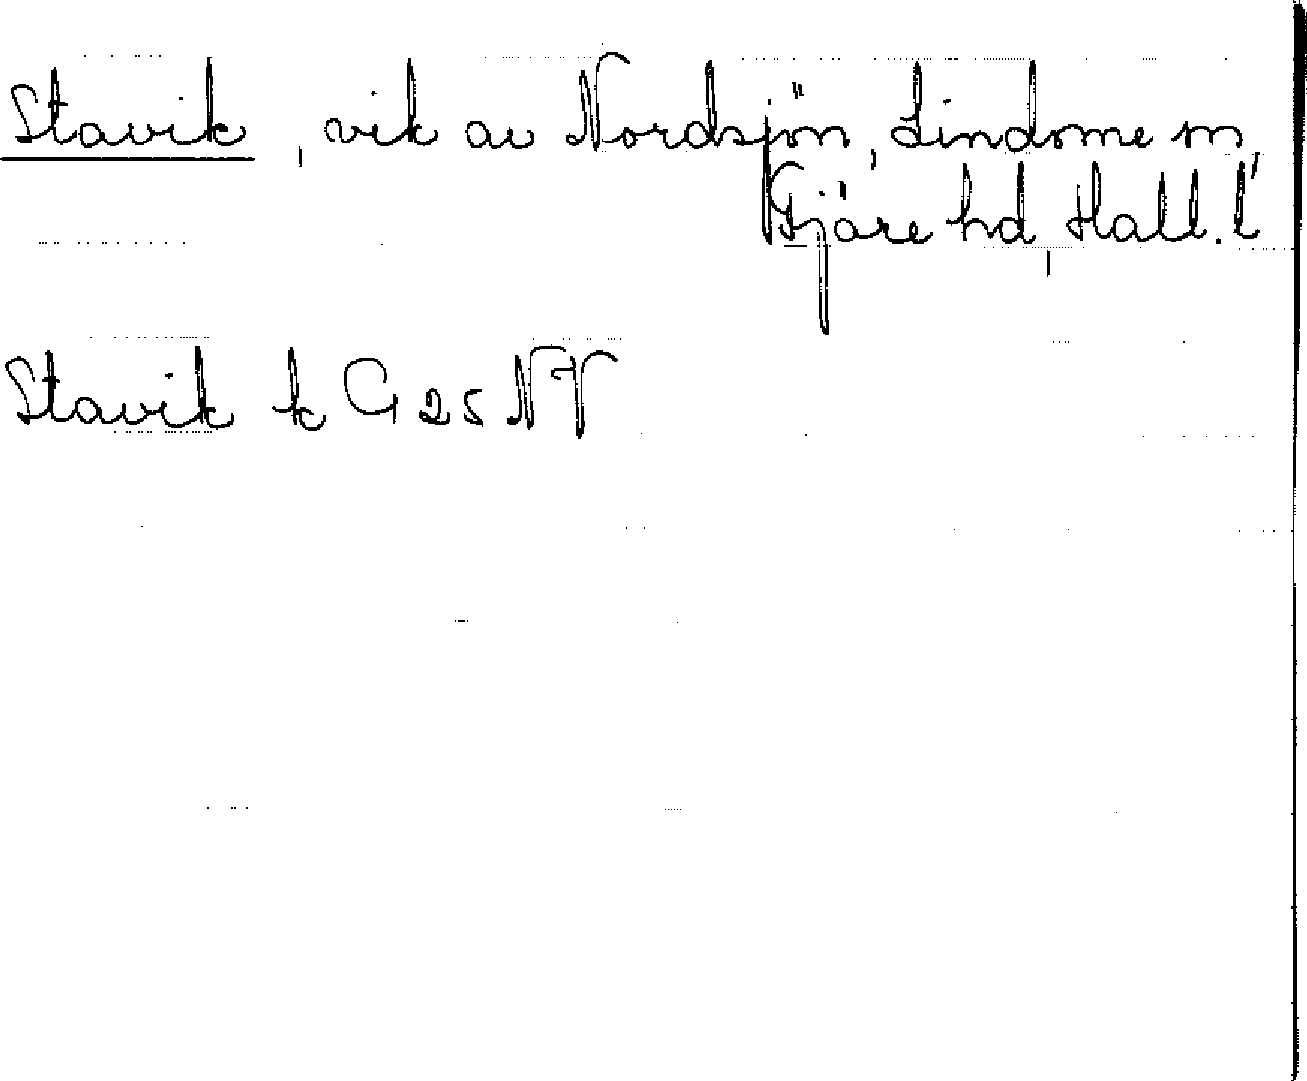 Stavik, vik av Nordsjön, Lindome sn,
Fjäre hd, Hall. l
Stavik k G 25 NV